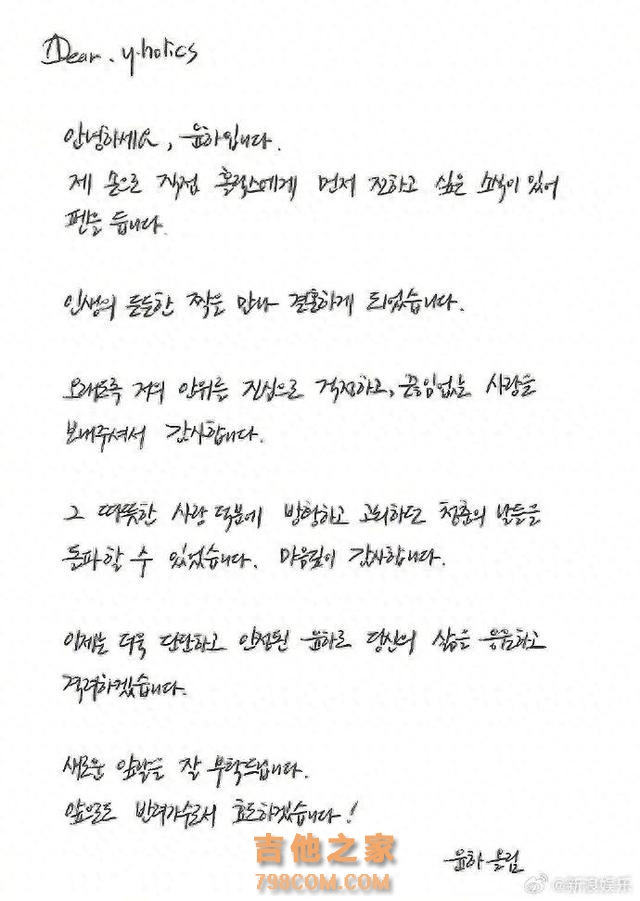 Dear. y.holics
안녕하세요, 윤하입니다.
제 손으로 직접 홀릭스에게 먼저 전하고 싶은 소식이 있어
펜을 듭니다.
인생의 든든한 짝을 만나 결혼하게 되었습니다.
오래도록 저의 안위를 진심으로 걱정하고, 끊임없는 사랑을
보내주셔서 감사합니다.
그 따뜻한 사랑 덕분에 방황하고 고뇌하던 청춘의 날들을
돌파할 수 있었습니다. 마음깊이 감사합니다.
이제는 더욱 단단하고 안정된 윤하로 당신의 삶을 응원하고
격려하겠습니다.
새로운 앞날을 잘 부탁드립니다.
앞으로도 반려가수로서 효도하겠습니다!
윤하 올림
吉他之家
798COM.COM
@新浪娱乐